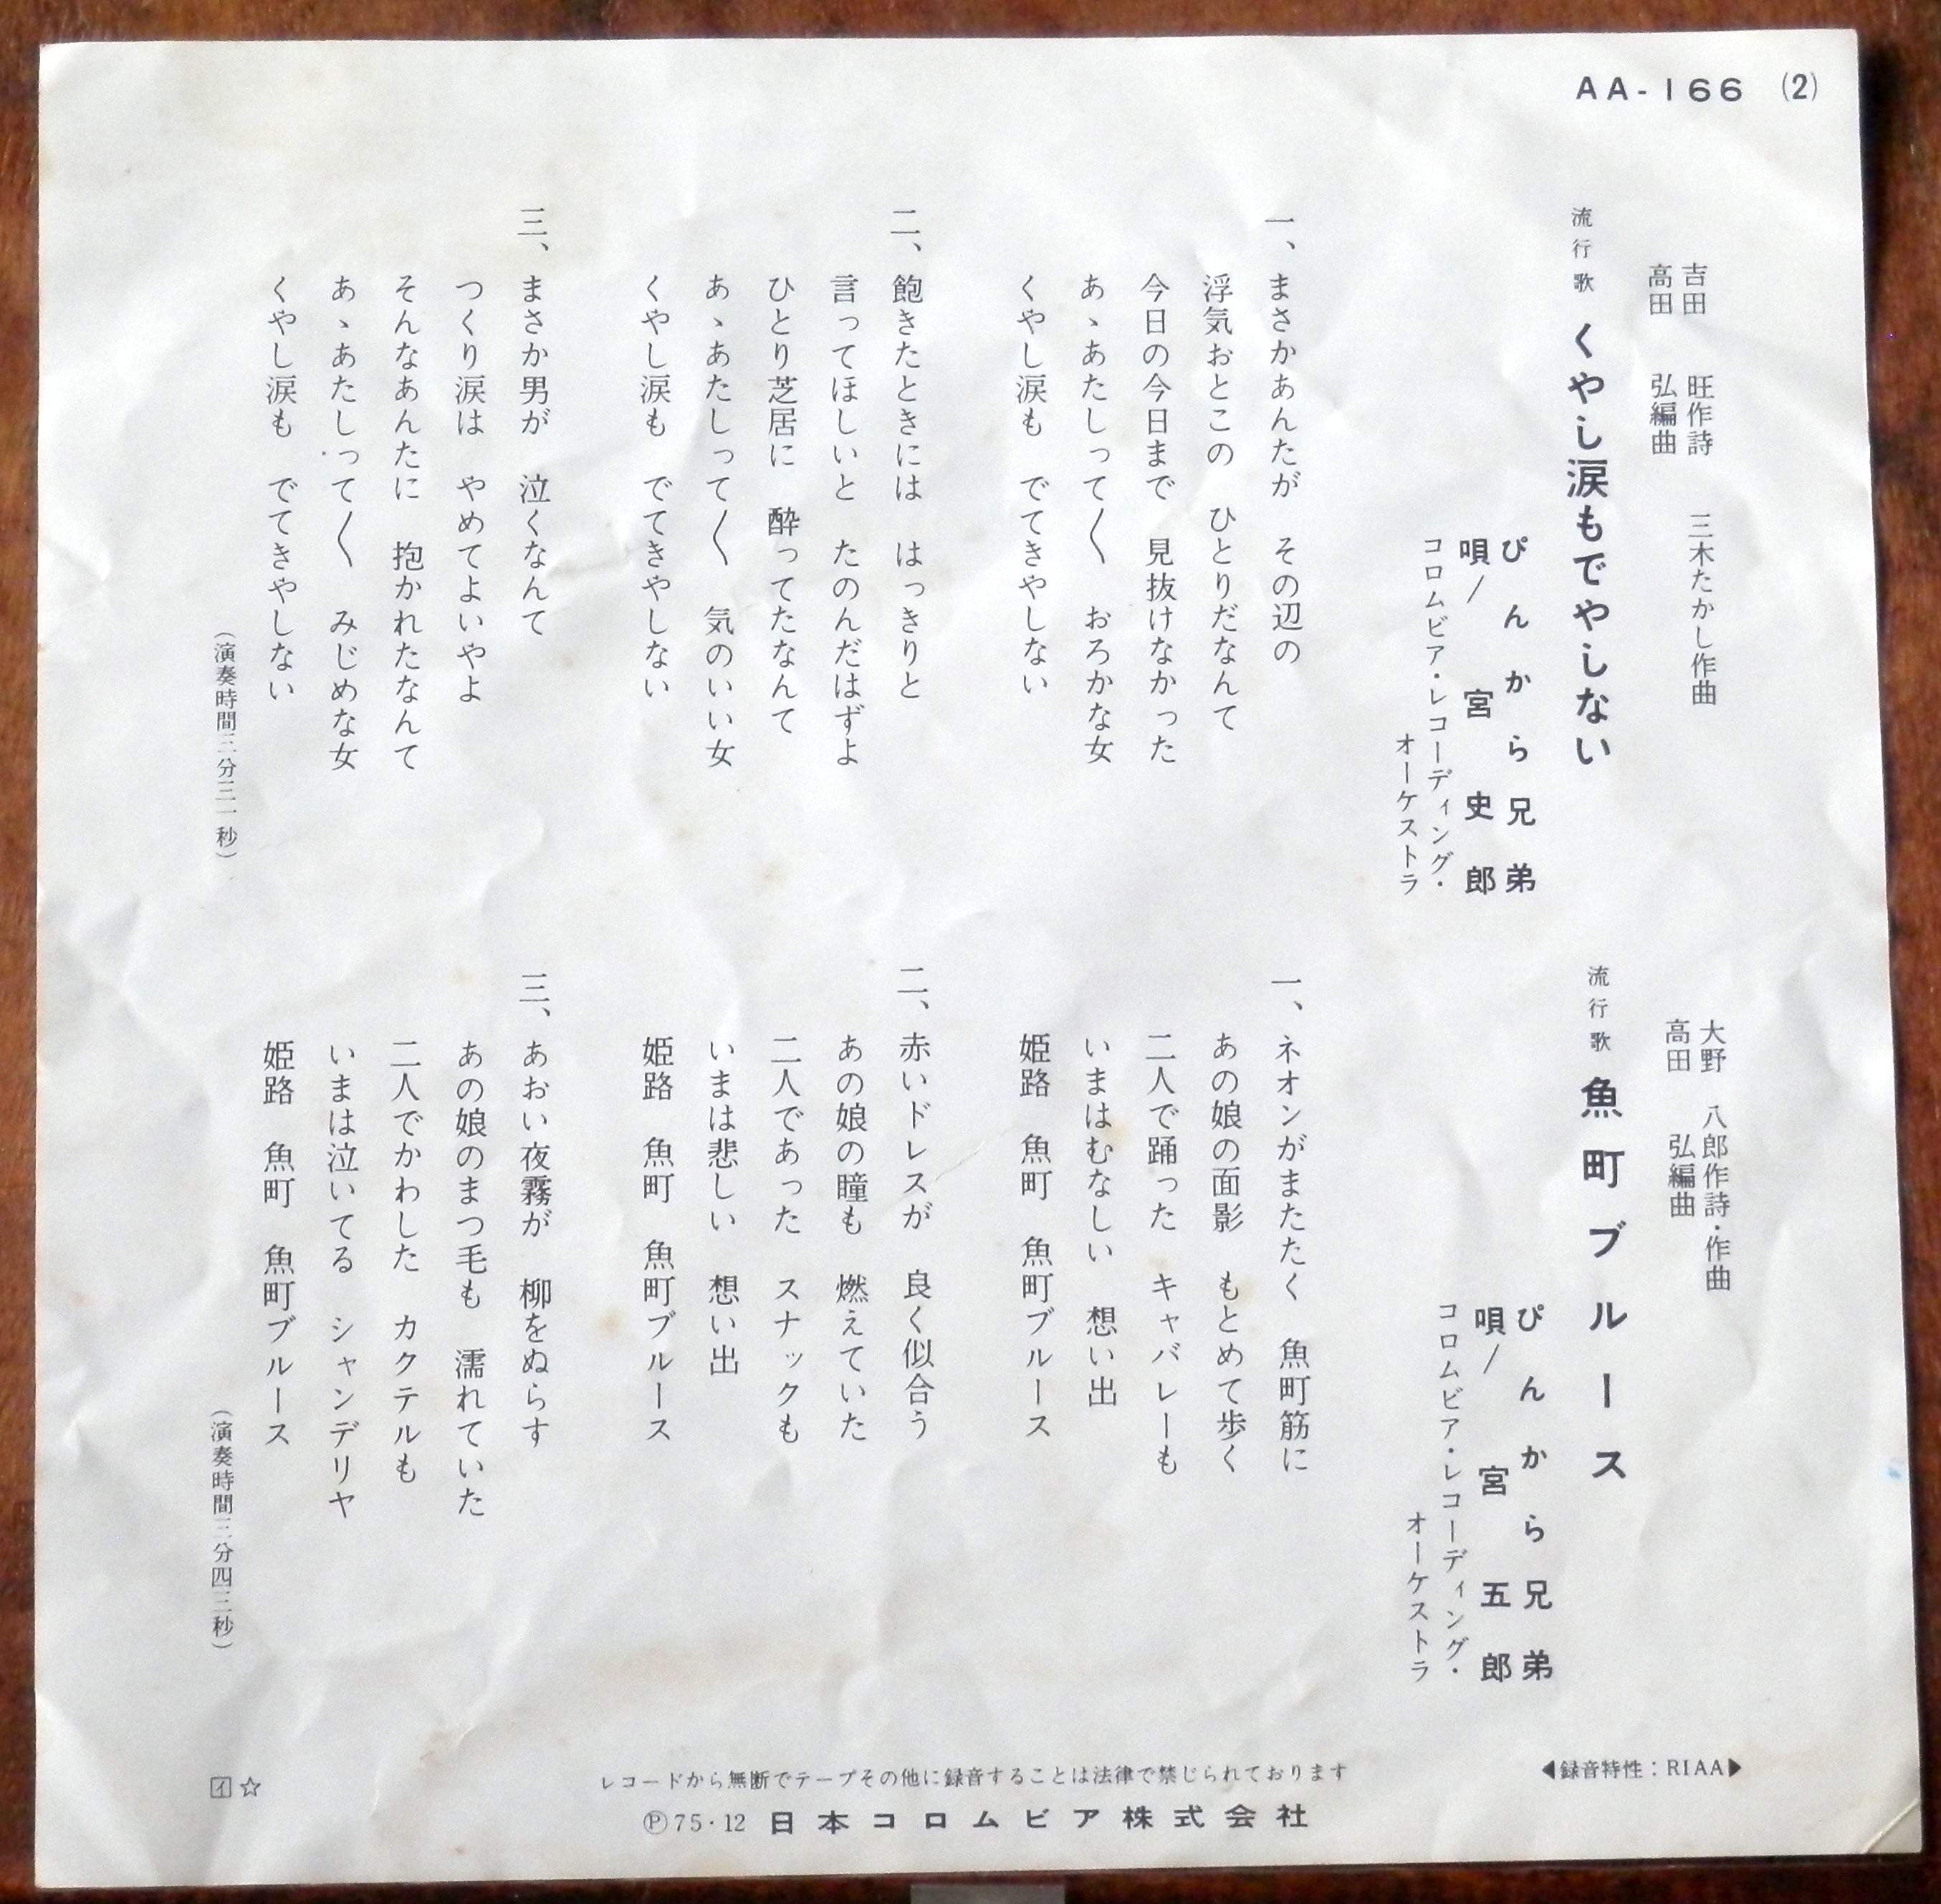 AA-166 (2)
吉田 旺作詩 三木たかし作曲
高田 弘編曲
流行歌 くやし涙もでやしない
ぴんから兄弟
唄/宮 史郎
コロムビア・レコーディング・
オーケストラ
一、まさかあんたが その辺の
浮気おとこの ひとりだなんて
今日の今日まで 見抜けなかった
あゝあたしって〱 おろかな女
くやし涙も でてきやしない
二、飽きたときには はっきりと
言ってほしいと たのんだはずよ
ひとり芝居に 酔ってたなんて
あゝあたしって〱 気のいい女
くやし涙も でてきやしない
三、まさか男が 泣くなんて
つくり涙は やめてよいやよ
そんなあんたに 抱かれたなんて
あゝあたしって〱 みじめな女
くやし涙も でてきやしない
(演奏時間三分三一秒)
大野 八郎作詩・作曲
高田 弘編曲
流行歌 魚町ブルース
ぴんから兄弟
唄/宮 五郎
コロムビア・レコーディング・
オーケストラ
一、ネオンがまたたく 魚町筋に
あの娘の面影 もとめて歩く
二人で踊った キャバレーも
いまはむなしい 想い出
姫路 魚町 魚町ブルース
二、赤いドレスが 良く似合う
あの娘の瞳も 燃えていた
二人であった スナックも
いまは悲しい 想い出
姫路 魚町 魚町ブルース
三、あおい夜霧が 柳をぬらす
あの娘のまつ毛も 濡れていた
二人でかわした カクテルも
いまは泣いてる シャンデリヤ
姫路 魚町 魚町ブルース
(演奏時間三分四三秒)
◀録音特性：RIAA▶
レコードから無断でテープその他に録音することは法律で禁じられております
Ⓟ75・12 日本コロムビア株式会社
イ ☆